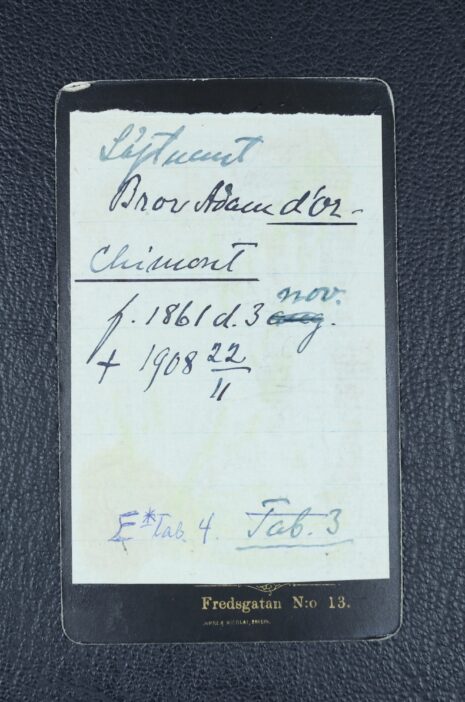 Löjtnant
Bror Adam d'Or-
chimont
f. 1861 d. 3 aug. nov.
+ 1908 22/11
E* Tab. 4. Tab. 3
Fredsgatan N:o 13.